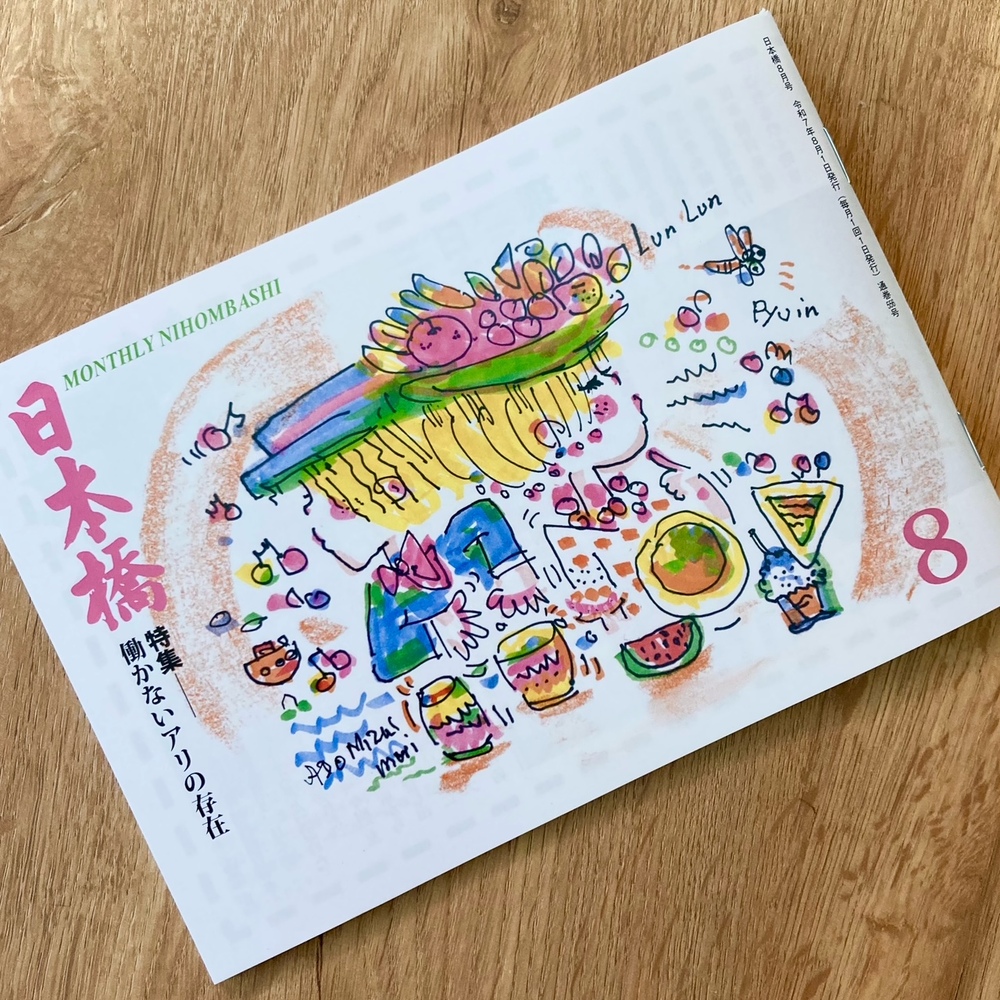 MONTHLY NIHOMBASHI
日本橋
特集
働かないアリの存在
8
Lun Lun
Pyuin
日本橋8月号 令和7年8月1日発行(毎月1回1日発行)